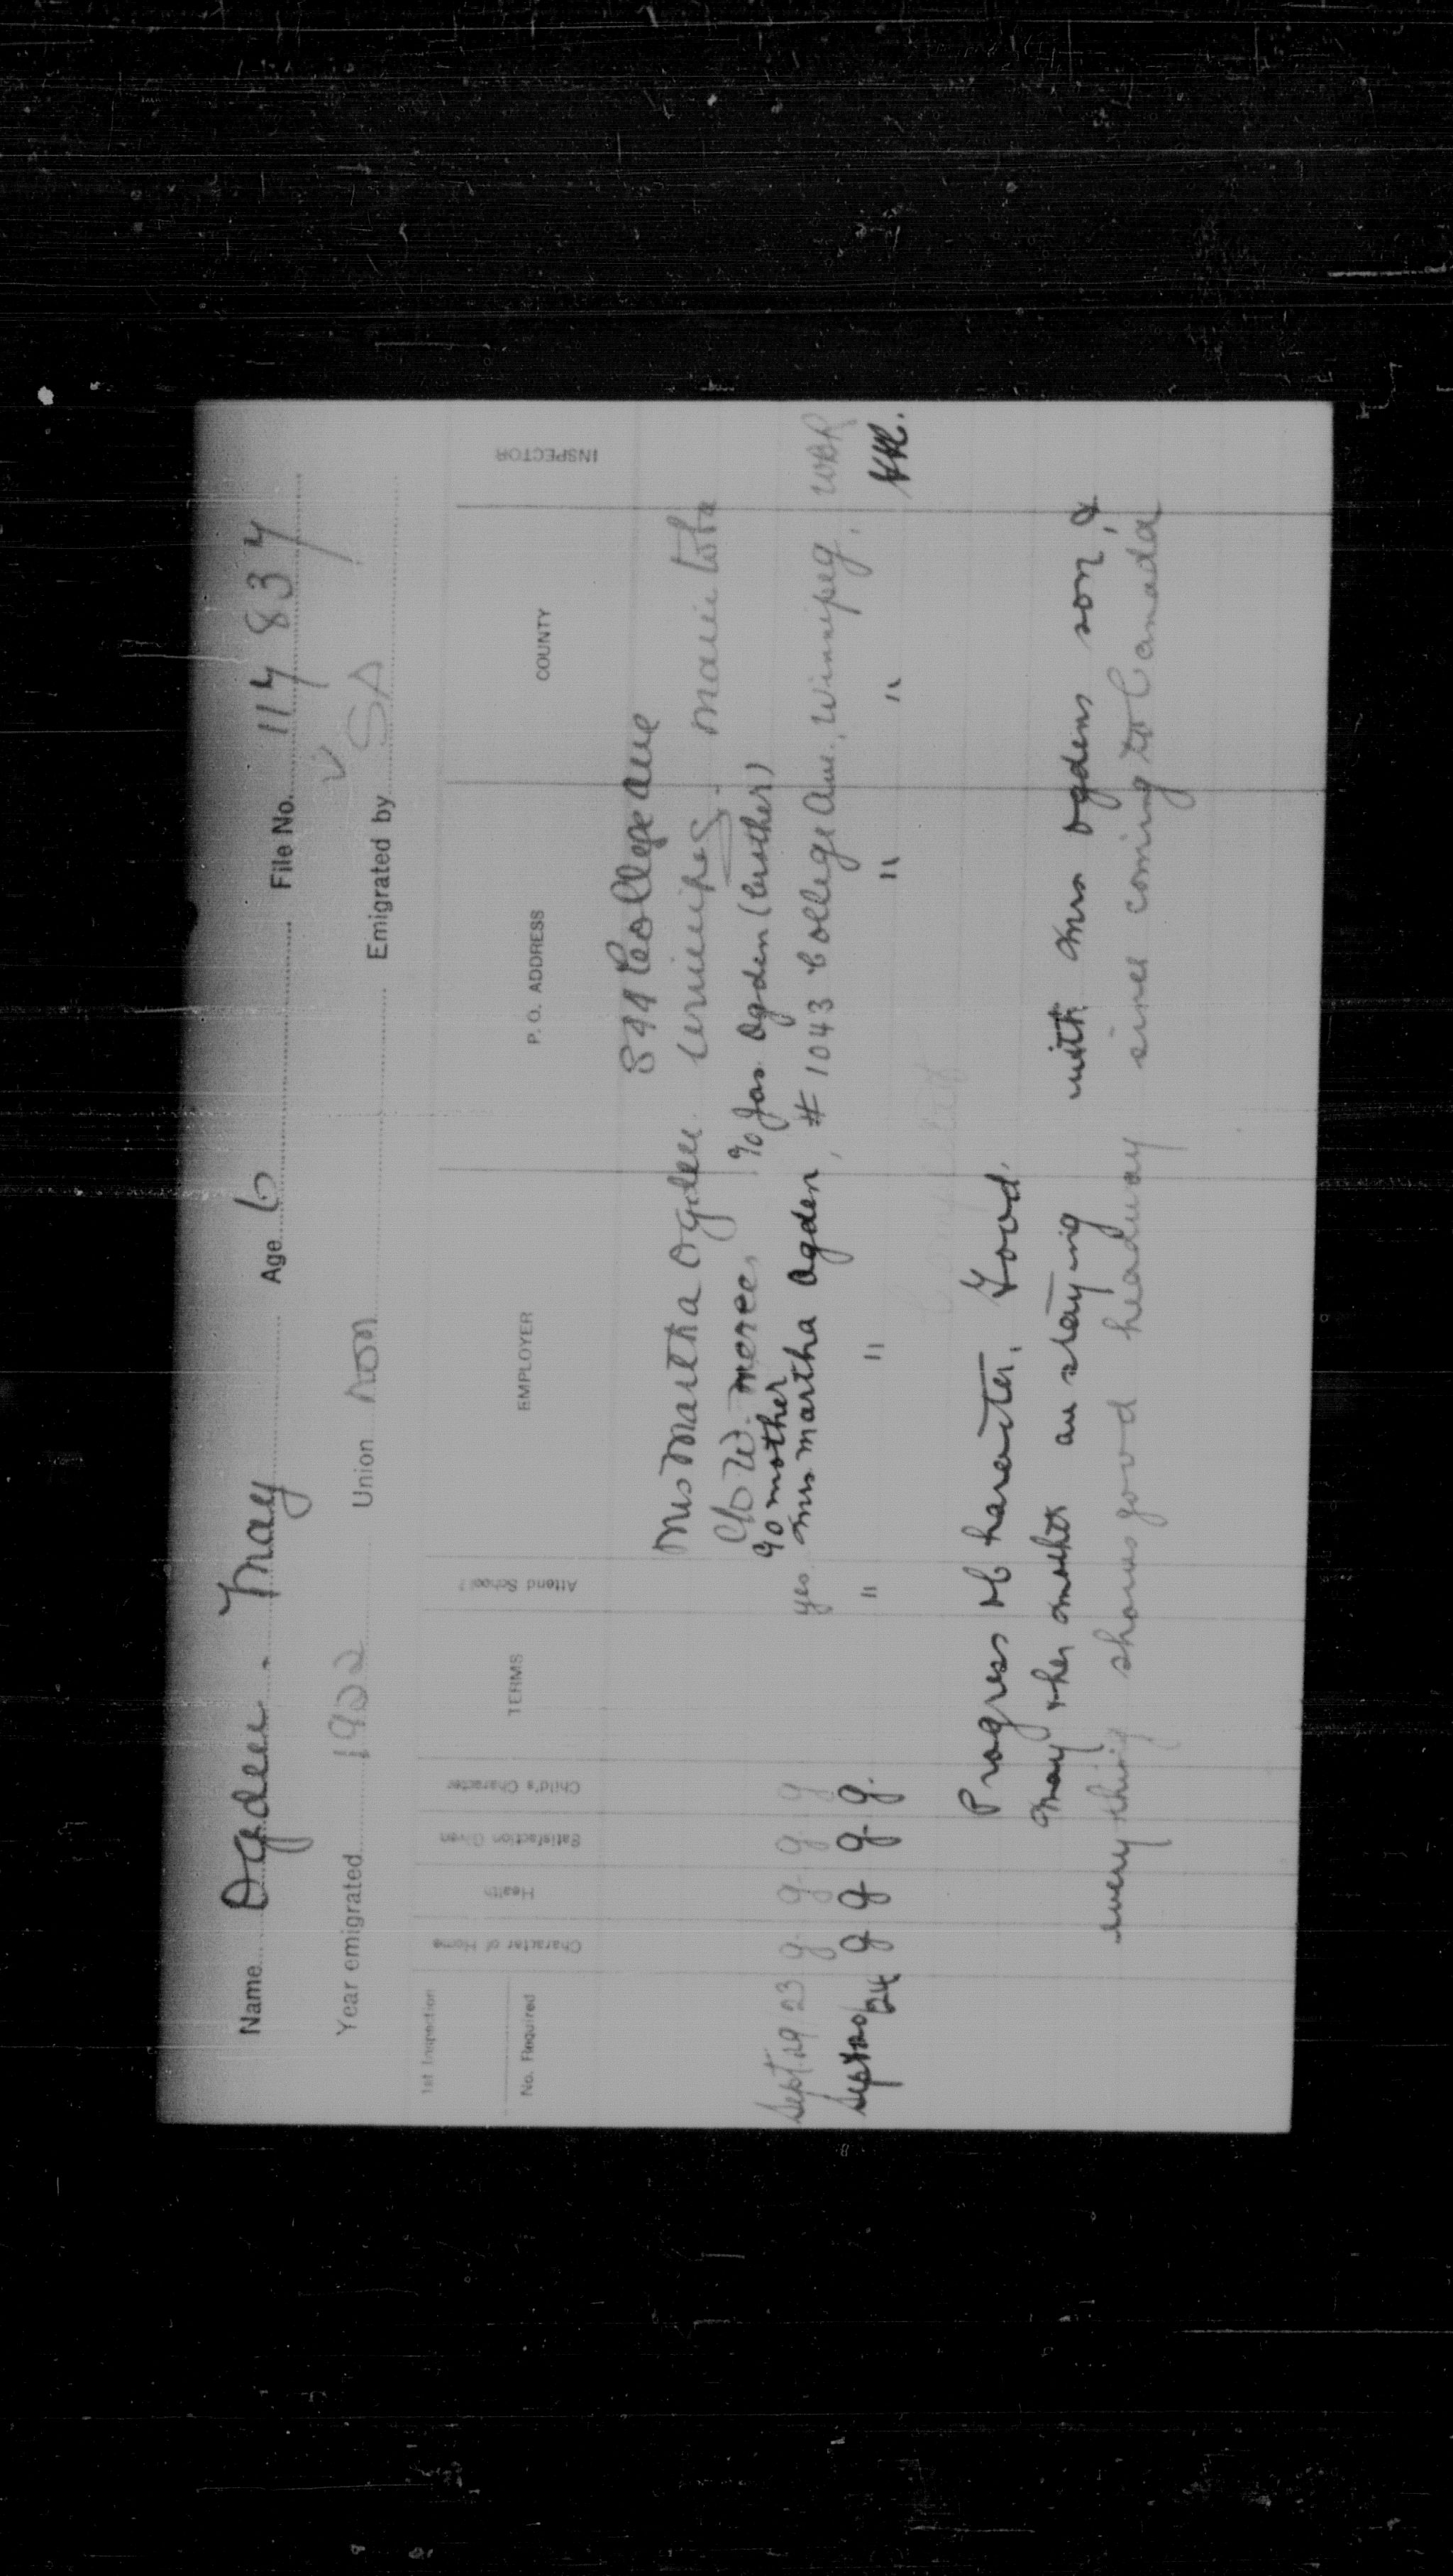 Name Ogden. May Age 6 File No. 117837
Year emigrated 1922 Union non Emigrated by SA
1st Inspection
No. Required
Character of Home
Health
Satisfaction Given
Child's Character
TERMS
Attend School?
EMPLOYER
P. O. ADDRESS
COUNTY
INSPECTOR
844 College Ave
Mrs Martha Ogden Winnipeg. Manitoba
c/o W.
c/o mother c/o Jas. Ogden (brother)
Sept. 29. 23 g. g. g. g yes. Mrs Martha Ogden, # 1043 College Ave., Winnipeg. WBR
Sept 20/24 g g g. g. " " " "
Progress of haracter. Good.
May & her mother are staying with Mrs Ogdens son, &
every thing shows good headway since coming to Canada